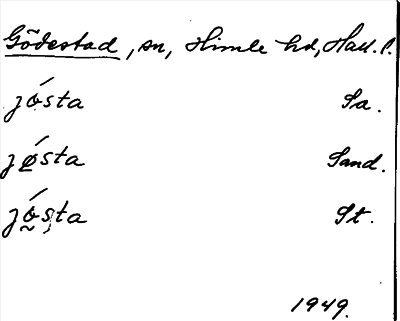 Gödestad, sn, Himle hd, Hall. l.
jö́sta Sa.
jǿsta Sand.
jö̰́sta St.
1949.